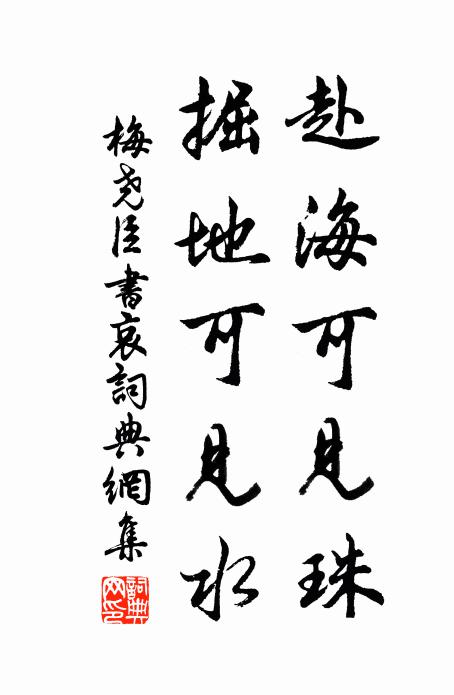 赴海可見珠
掘地可見水
梅堯臣書哀詞典網集
詞典網印